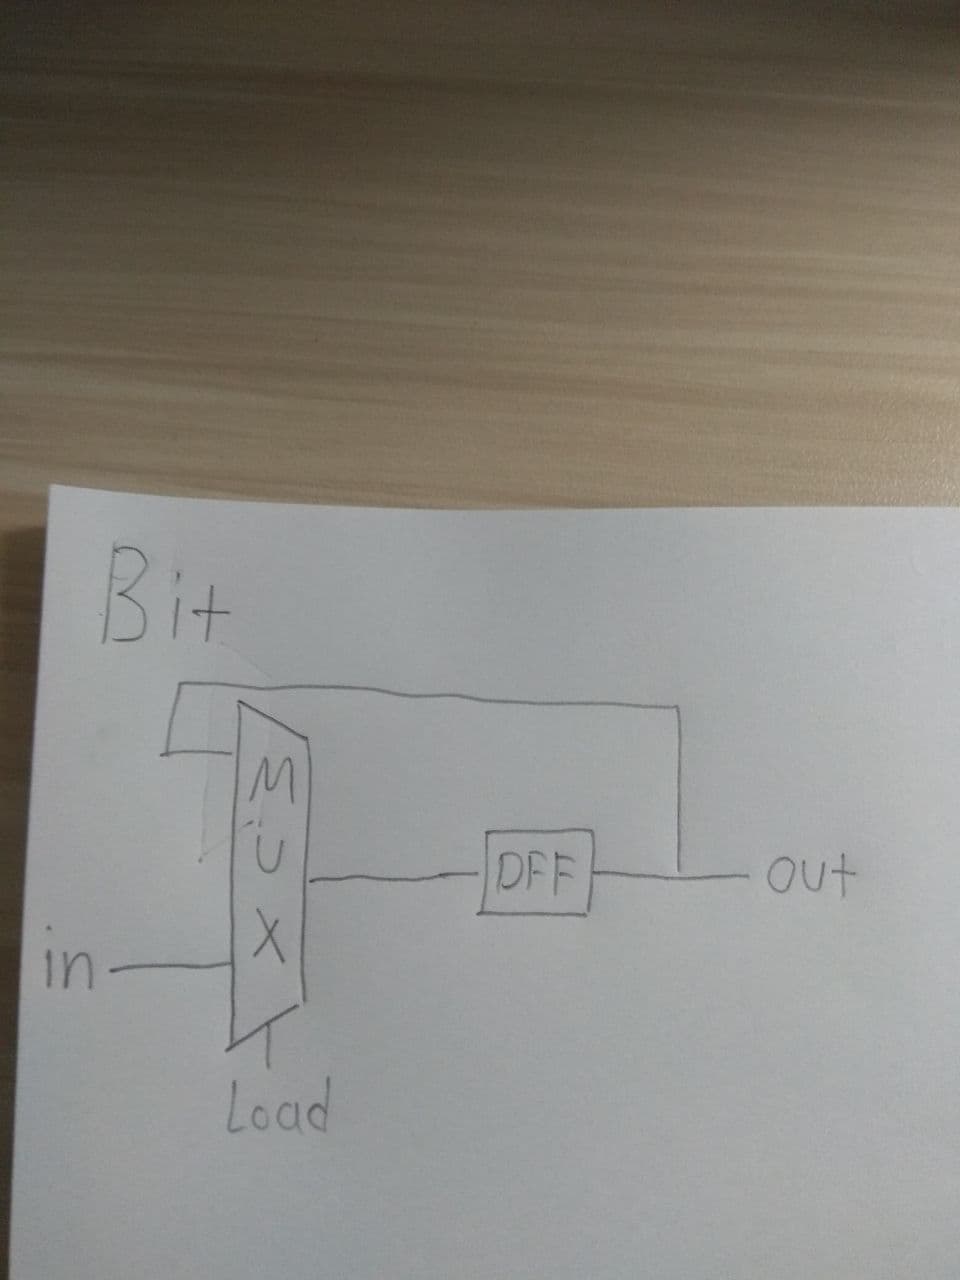 Bit
M
U
X
DFF
out
in
Load